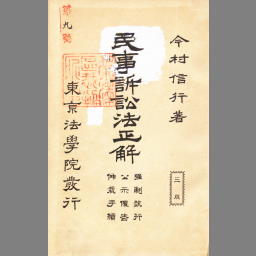 今村信行著
三版
民事訴訟法正解
強制執行
公示催告
仲裁手續
東京法學院發行
第九號